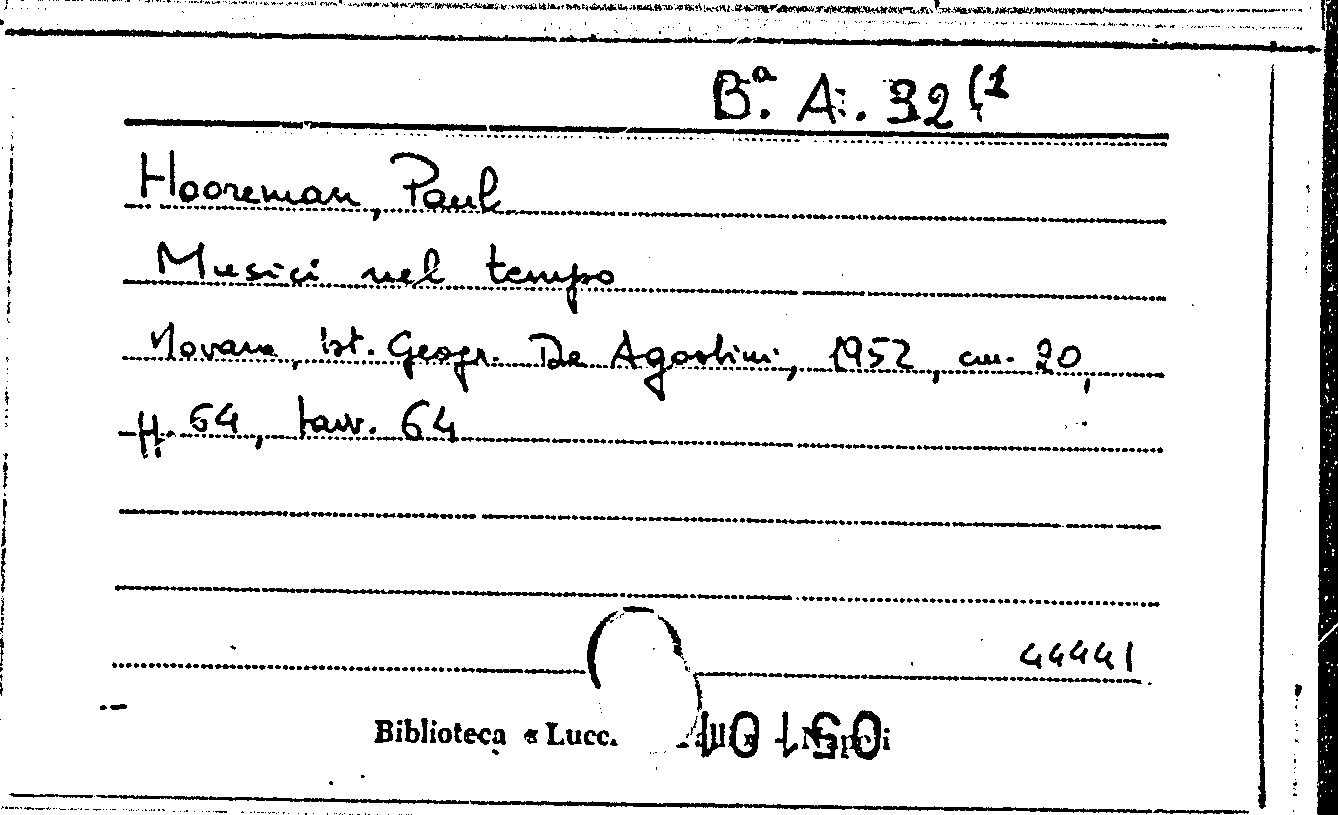 Bª. A. 32 (1
Hooreman, Paul
Musici nel tempo
Novara, Ist. Geogr. De Agostini, 1952, cm. 20,
ff. 64, tavv. 64
44441
Biblioteca « Lucc.